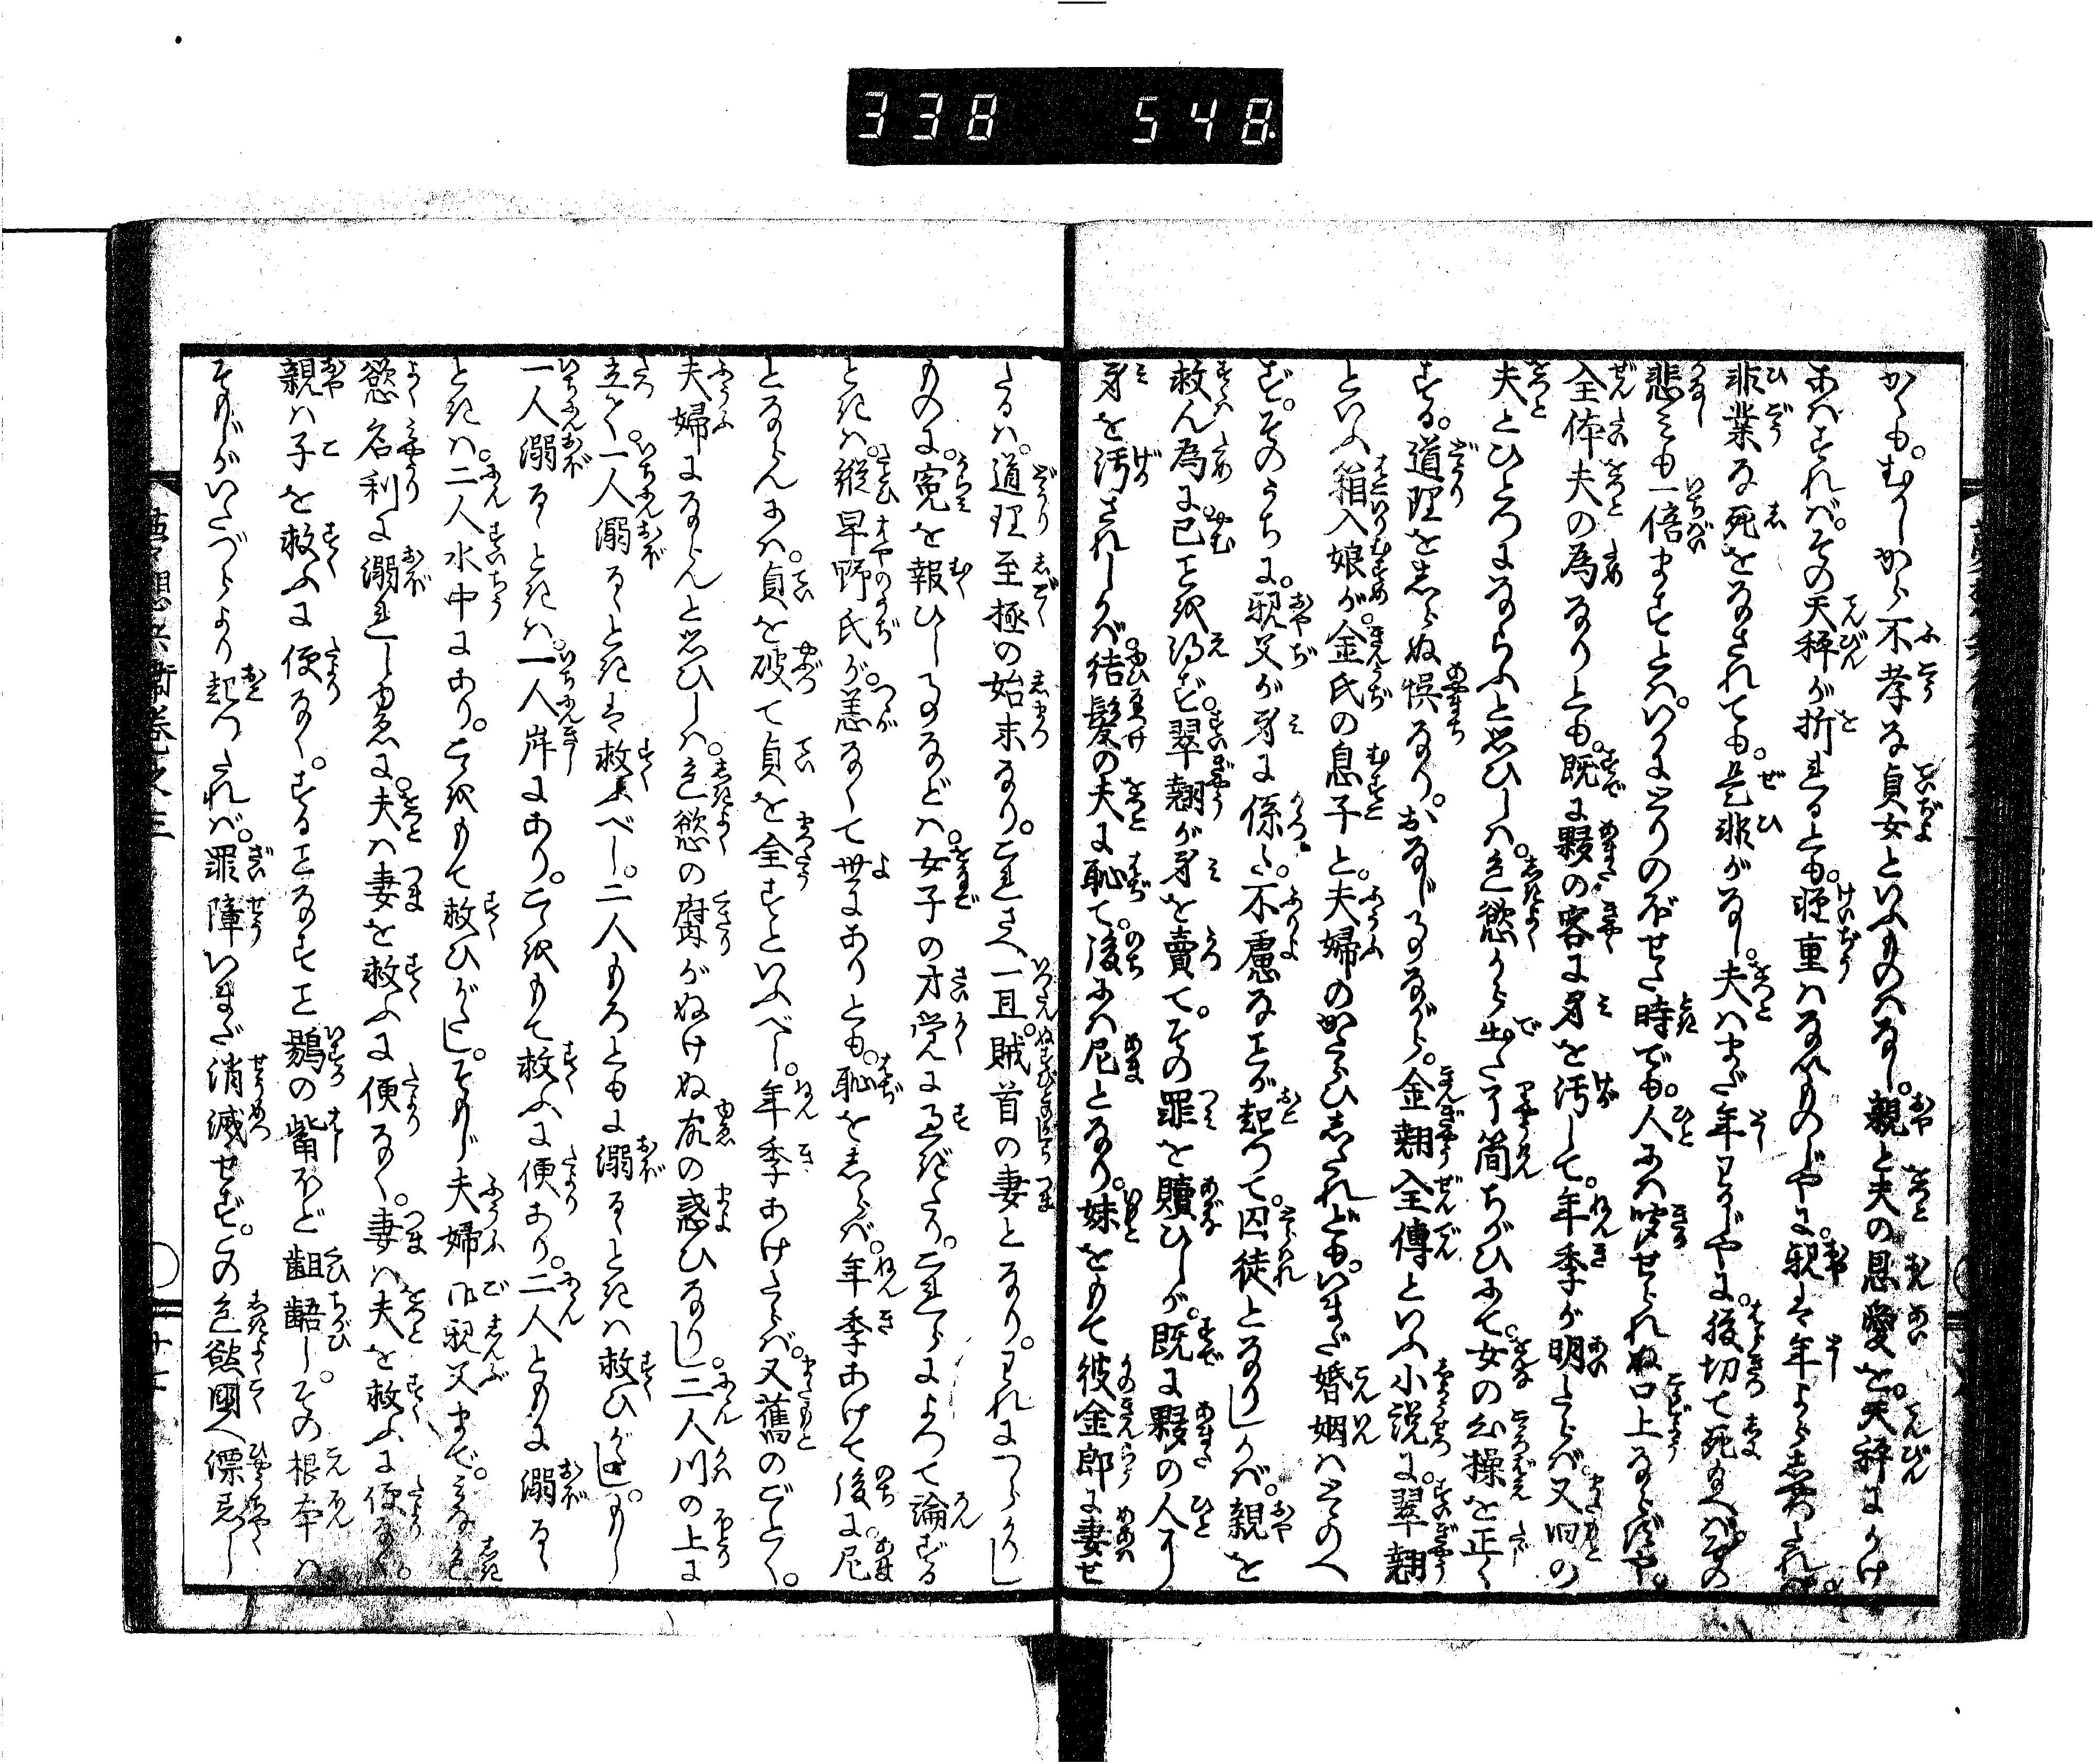 338 548
かくも。むかしから不孝な貞女といふものはなし。親と夫の恩愛を。天秤にかけ
あはすれば。その天秤が折るゝとも。軽重はなきものじやに。親は年よらしやつたれば。
非業な死をなされても。是非がなし。夫はまだ年わかじやに。腹切て死なへば。その
悲しみも一倍ますとは。いかにとりのぼせた時でも。人には咬せられぬ口上ならずや。
全体夫の為なりとも。既に夥の客に身を汚して。年季が明たらば又旧の
夫とひとつにならふと思ひしは。色慾から出た了簡ちがひにて。女の心操を正く
する。道理をしらぬ悞なり。おなじ事ながら。金翹全傳といふ小説に。翠翹
といふ箱入娘が。金氏の息子と。夫婦のかたらひしたれども。いまだ婚姻はとゝのへ
ず。そのうちに。親父が身に係た。不慮なことが起つて。囚徒となりしかば。親を
救ん為に。已ことを得ず。翠翹が身を賣て。その罪を贖ひしが。既に夥の人に
身を汚されしかば。結髪の夫に恥て。後には尼となり。妹をもて彼金郎に妻せ
たるは。道理至極の始末なり。これさへ一旦。賊首の妻となり。われにつらかりし
ものに。寃を報ひし事などは。女子の才覚に過ぎたり。これらによつて論ずる
ときは。縦早野氏が。恙なくて世にありとも。恥をしらば。年季あけて後に。尼
とならんには。貞を破て貞を全すといふべし。年季あけたらば。又舊のごとく。
夫婦にならんと思ひしは。色慾の腐がぬけぬ故の惑ひなり。二人川の上に
立て。一人溺るゝときは救ふべし。二人もろともに溺るゝときは救ひがたし。もし
一人溺るゝときは。一人岸にあり。こゝをもて救ふに便あり。二人ともに溺るゝ
ときは。二人水中にあり。こゝをもて救ひがたし。そもじ夫婦御親父まで。みな色
慾名利に溺れしゆゑに。夫は妻を救ふに便なく。妻は夫を救ふに便なく。
親は子を救ふに便なく。することなすこと鶍の觜ほど齟齬し。その根本は
そもじがいたづらより起つたれば。罪障いまだ消滅せず。この色慾國へ漂泊し
夢想兵衛 巻之三